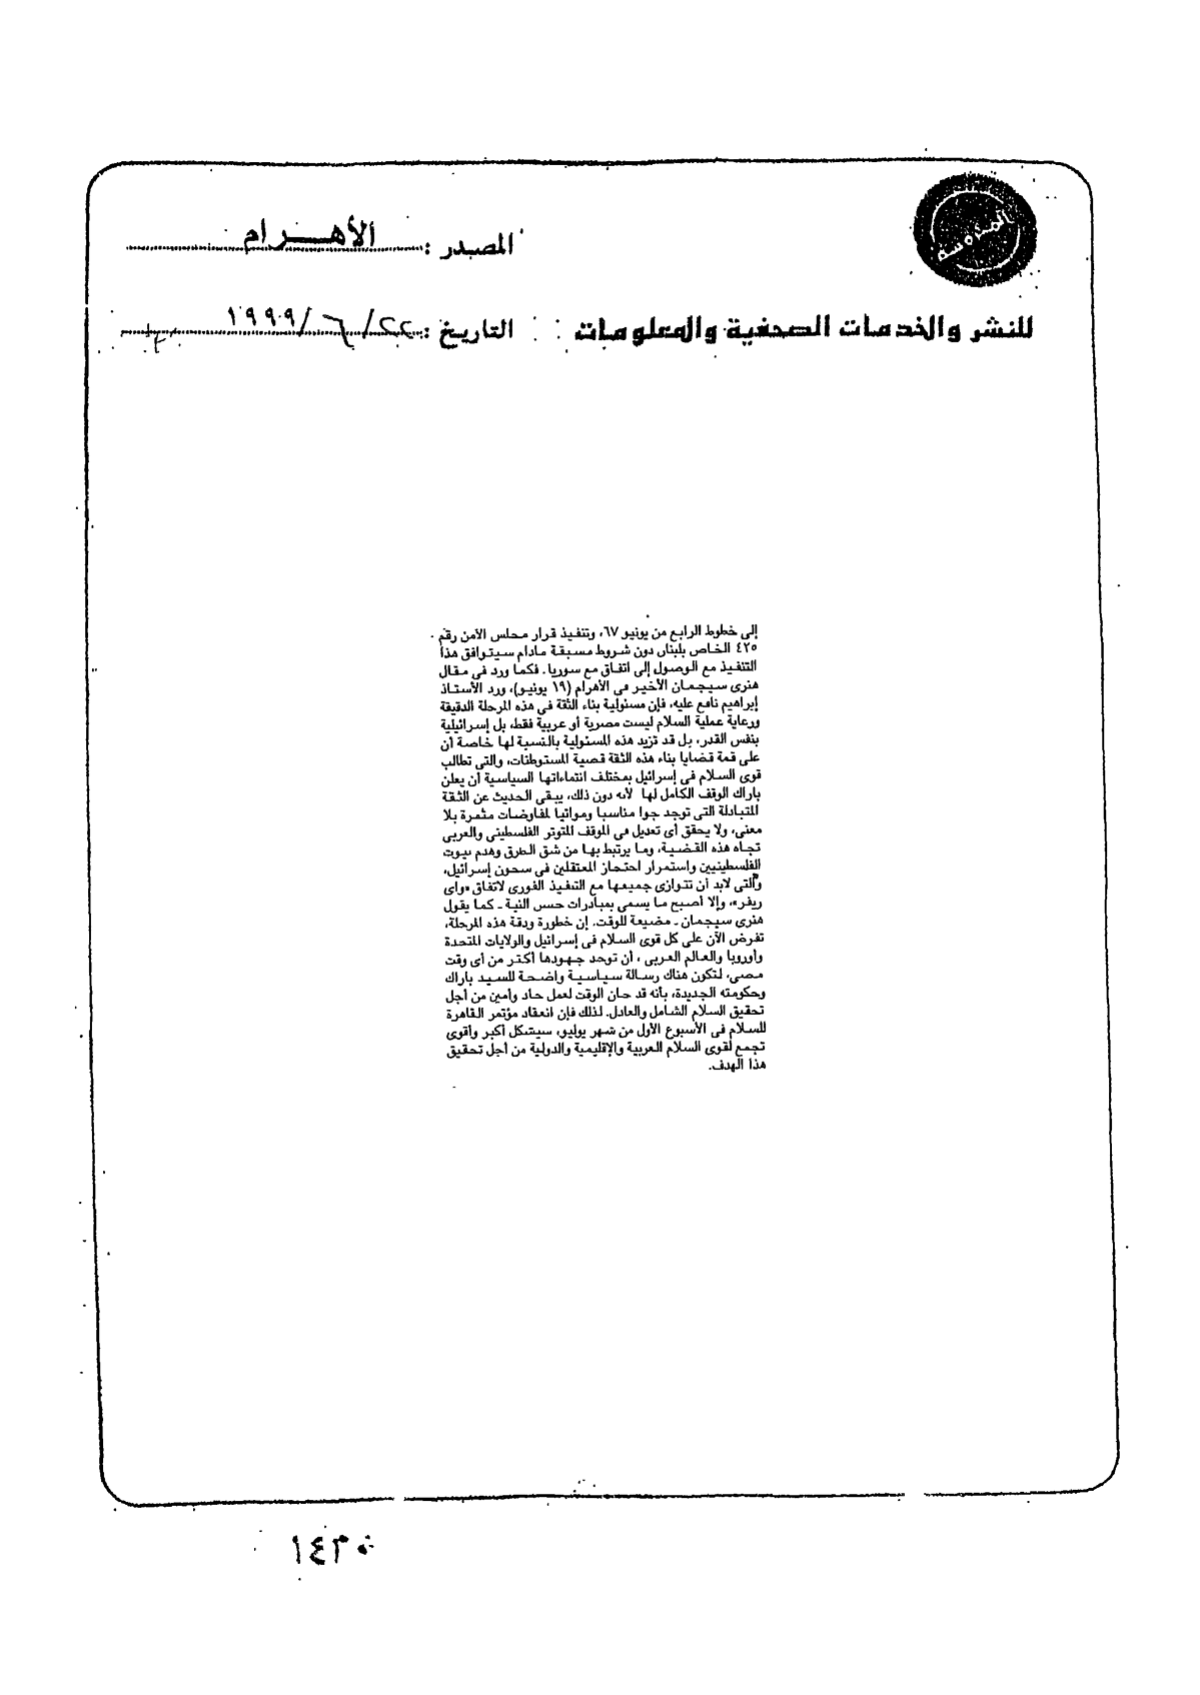 المصدر : الأهرام
للنشر والخدمات الصحفية والمعلومات
التاريخ : ٢٢/٦/١٩٩٩
إلى خطوط الرابع من يونيو ٦٧، وتنفيذ قرار مجلس الأمن رقم
٤٢٥ الخاص بلبنان دون شروط مسبقة مادام سيتوافق هذا
التنفيذ مع الوصول إلى اتفاق مع سوريا. فكما ورد فى مقال
هنرى سيجمان الأخير فى الأهرام (١٩ يونيو)، ورد الأستاذ
إبراهيم نافع عليه، فإن مسئولية بناء الثقة فى هذه المرحلة الدقيقة
ورعاية عملية السلام ليست مصرية أو عربية فقط، بل إسرائيلية
بنفس القدر، بل قد تزيد هذه المسئولية بالنسبة لها خاصة أن
على قمة قضايا بناء هذه الثقة قضية المستوطنات، والتى تطالب
قوى السلام فى إسرائيل بمختلف انتماءاتها السياسية أن يعلن
باراك الوقف الكامل لها لأنه دون ذلك، يبقى الحديث عن الثقة
المتبادلة التى توجد جوا مناسبا ومواتيا لمفاوضات مثمرة بلا
معنى، ولا يحقق أى تعديل فى الموقف المتوتر الفلسطينى والعربى
تجاه هذه القضية، وما يرتبط بها من شق الطرق وهدم بيوت
الفلسطينيين واستمرار احتجاز المعتقلين فى سجون إسرائيل،
والتى لابد أن تتوازى جميعها مع التنفيذ الفورى لاتفاق «واى
ريفر»، وإلا أصبح ما يسمى بمبادرات حسن النية ـ كما يقول
هنرى سيجمان ـ مضيعة للوقت. إن خطورة ودقة هذه المرحلة،
تفرض الآن على كل قوى السلام فى إسرائيل والولايات المتحدة
وأوروبا والعالم العربى ، أن توحد جهودها أكثر من أى وقت
مضى، لتكون هناك رسالة سياسية واضحة للسيد باراك
وحكومته الجديدة، بأنه قد حان الوقت لعمل جاد وأمين من أجل
تحقيق السلام الشامل والعادل. لذلك فإن انعقاد مؤتمر القاهرة
للسلام فى الأسبوع الأول من شهر يوليو، سيشكل أكبر وأقوى
تجمع لقوى السلام العربية والإقليمية والدولية من أجل تحقيق
هذا الهدف.